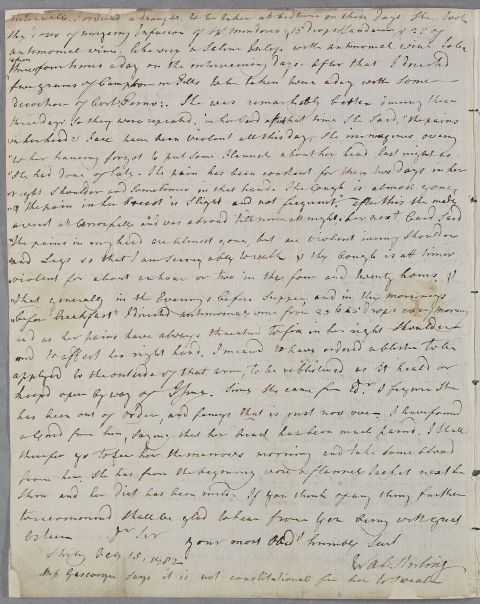 intervals, I ordered a draught, to be taken at bedtime on these days She took
the Doses of purging Infusion of Sp: Mindereri, 15 drops Laudanum & 25 of
antimonial wine. Likewise a Saline Julep with antimonial wine to be
taken three or four times a day on the intervening days. After that I directed
five grains of Camphor in Pills to be taken twice a day with some
decoction of Cort: Peruv:. She was remarkably better during these
three days So they were repeated, in her Card after that time She Said, "The pains
in her head & Face have been violent all this day, She imagines owing
to her having forgot to put Some Flannel about her head last night as
She had done of late. The pain has been constant for these two days in her
right Shoulder and Sometimes in that hand. The Cough is almost gone,
& The pain in her breast is slight and not frequent. After this She made
a visit at and was abroad till nine at night. her next Card Said
The pains in my head are almost gone, but are violent in my Shoulder
and Legs so that I am Scarce able to walk & the Cough is at times
violent for about an hour or two in the four and twenty hours, &
That generally in the Evenings before Supper and in the mornings
before breakfast" I directed antimonial wine from 25 to 45 drops every morning
and as her pains have always threaten'd to fix in her right Shoulder
and to affect her right hand. I meant to have ordered a blister to be
applyed to the outside of that arm, to be reblistered as it heal'd or
keep'd open by way of Issue. Since she came from Edr. I figure She
has been out of order, and fancys that is just now over I have found
a Card from her, Saying that her head has been much pained. I Shall
therefor go to See her tomorrow morning and take some blood
from her. She has from the beginning wore a flannel Jacket next her
Skin and her Diet has been mild. If you think of any thing further
to recommend Shall be glad to hear from you being with great
Esteem Dr Sir
your most Obedt humble Servt
Stirling Feby 15, 1782
Walr Stirling
Mrs Gascoigne says it is not constitutional for her to Sweat